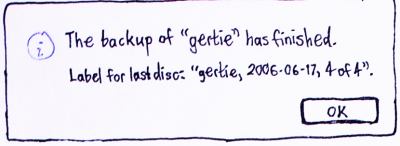 The backup of "gertie" has finished.
Label for last disc: "gertie, 2006-06-17, 4 of 4".
OK